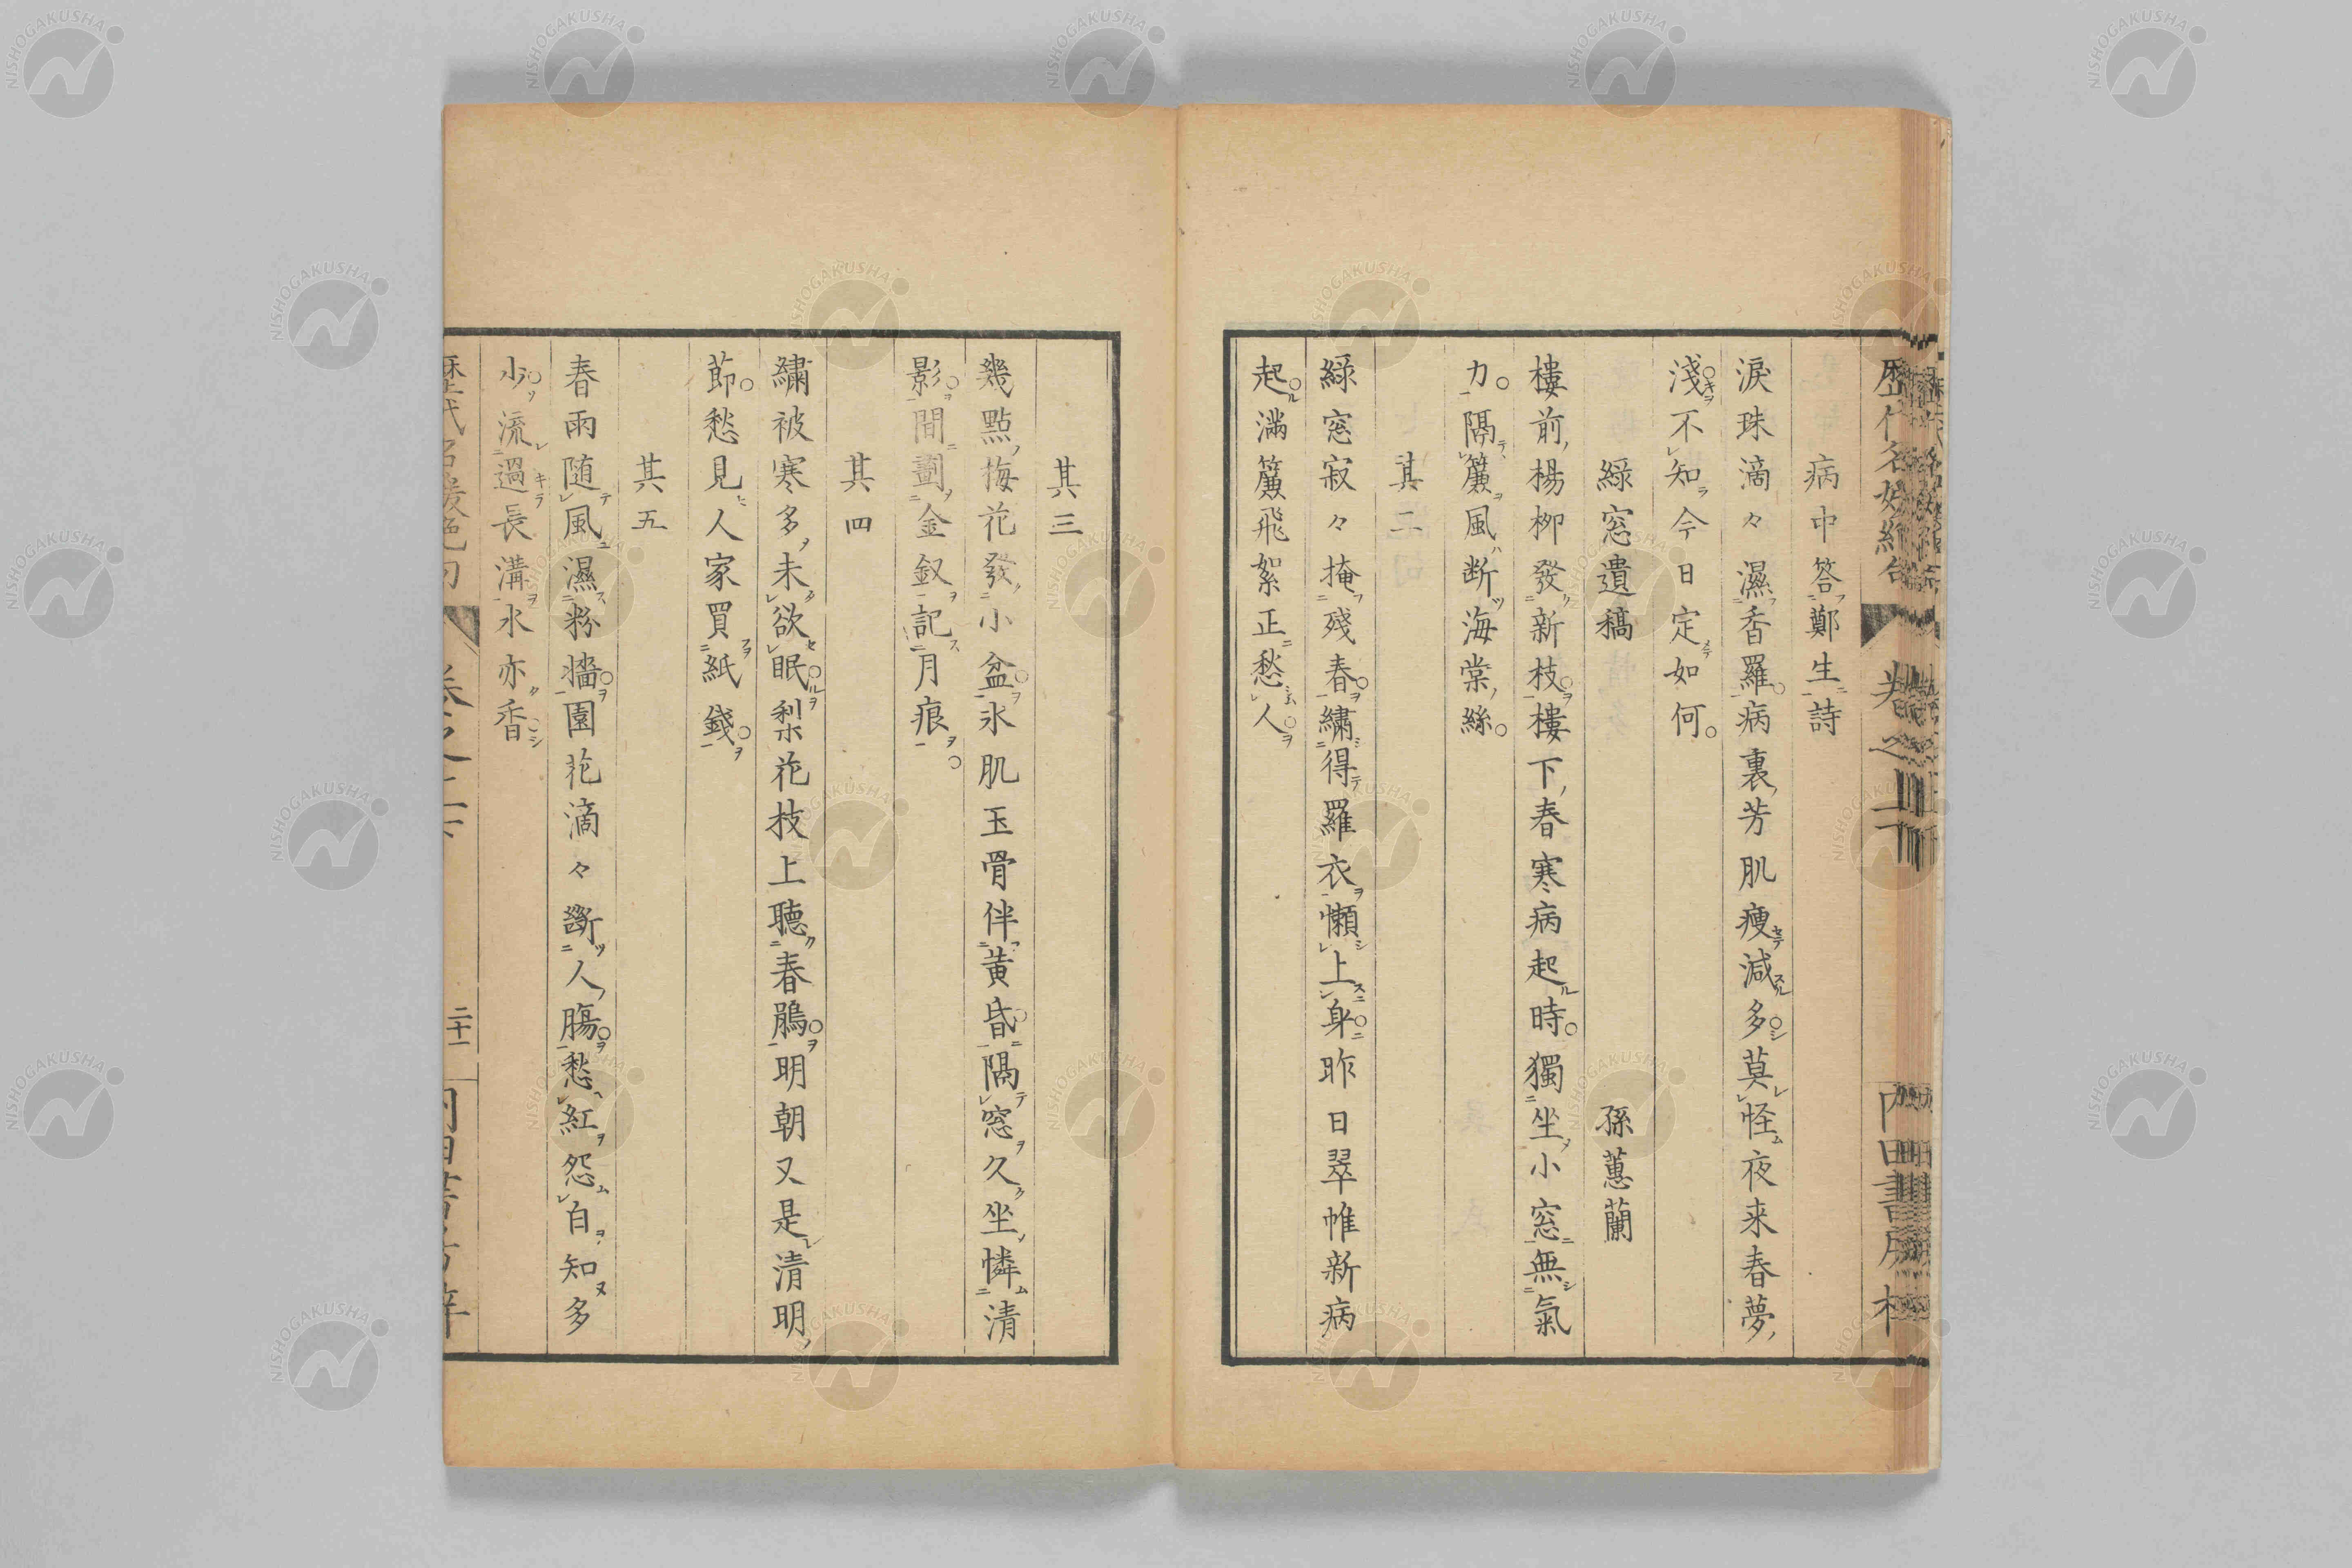 病中答鄭生詩
淚珠滴々濕香羅病裏芳肌瘦減多莫怪夜来春夢
淺不知今日定如何
綠窓遺稿 孫蕙蘭
樓前楊柳發新枝樓下春寒病起時獨坐小窓無氣
力隔簾風断海棠絲
其二
綠窓寂々掩殘春繡得羅衣懶上身昨日翠帷新病
起滿簾飛絮正愁人
其三
幾點梅花發小盆氷肌玉骨伴黃昏隔窓久坐憐清
影間劃金釵記月痕
其四
繡被寒多未欲眠梨花枝上聽春鵑明朝又是清明
節愁見人家買紙錢
其五
春雨随風濕粉牆園花滴々斷人腸愁紅怨白知多
少流過長溝水亦香
二十一